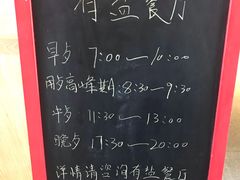 有盐餐厅
早歺 7:00—10:00
用歺高峰期:8:30-9:30
午歺 11:30—13:00
晚歺 17:30—20:00
详情请咨询有盐餐厅